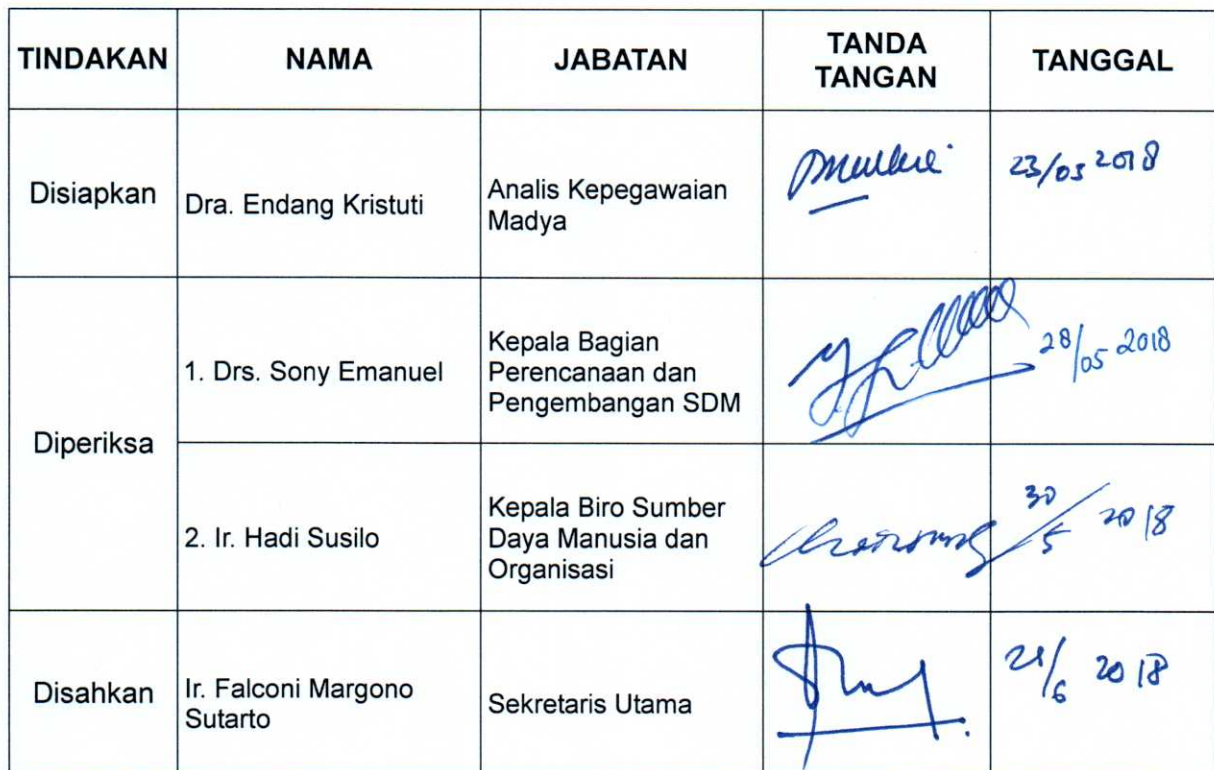 TINDAKAN
NAMA
JABATAN
TANDA
TANGAN
TANGGAL
Disiapkan
Dra. Endang Kristuti
Analis Kepegawaian
Madya
23/05 2018
Diperiksa
1. Drs. Sony Emanuel
Kepala Bagian
Perencanaan dan
Pengembangan SDM
28/05 2018
2. Ir. Hadi Susilo
Kepala Biro Sumber
Daya Manusia dan
Organisasi
30/5 2018
Disahkan
Ir. Falconi Margono
Sutarto
Sekretaris Utama
/6 2018